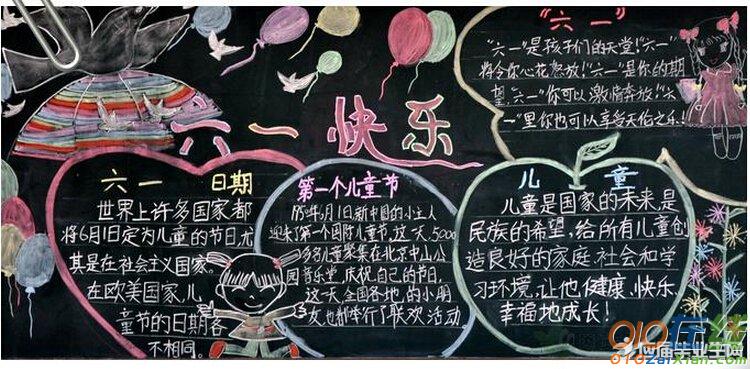 六一快乐
"六一"
"六一"是孩子们的天堂!"六一"
将令你心花怒放!"六一"是你的期
望,"六一"你可以激情奔放!"六
一"里你也可以享受天伦之乐!
六一 日期
世界上许多国家都
将6月1日定为儿童的节日,尤
其是在社会主义国家。
在欧美国家,儿
童节的日期各
不相同。
第一个儿童节
1950年6月1日新中国的小主人
迎来了第一个国际儿童节,这一天,5000
多名儿童聚集在北京中山公
园音乐堂,庆祝自己的节日,
这一天全国各地的小朋
友也都举行了联欢活动
儿童
儿童是国家的未来,是
民族的希望,给所有儿童创
造良好的家庭、社会和学
习环境,让他健康、快乐、
幸福地成长!
应届毕业生网
010在线
010zaixian.com